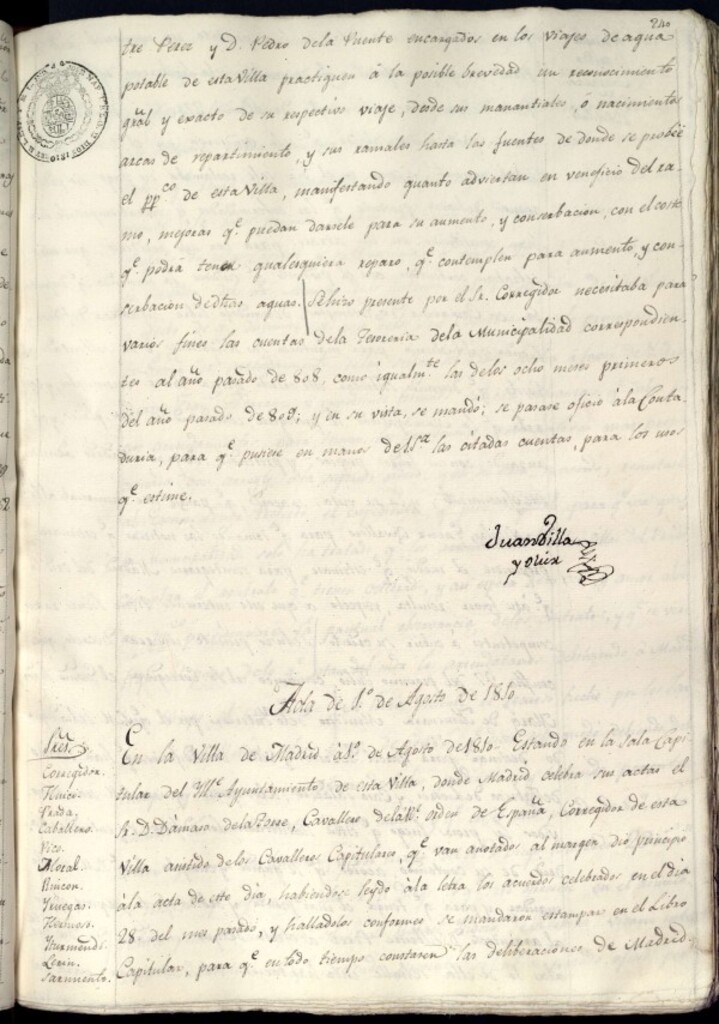 240
tre Perez y D. Pedro dela Puente encargados en los viajes de agua
potable de esta Villa practiquen á la posible brevedad un reconocimiento
gral y exacto de su respectivo viaje, desde sus manantiales, ó nacimientos
arcas de repartimiento, y sus ramales hasta las fuentes de donde se probée
el ppco de esta Villa, manifestando quanto adviertan en veneficio del ra-
mo, mejoras q.e puedan darsele para su aumento, y conserbacion, con el coste
q.e podrá tener qualesquiera reparo, q.e contemplen para aumento, y con-
serbacion de dhas aguas. Se hizo presente por el Sr. Corregidor necesitaba para
varios fines las cuentas dela Tesoreria dela Municipalidad correspondien-
tes al año pasado de 808, como igualm.te las delos ocho meses primeros
del año pasado de 809; y en su vista, se mandó; se pasase oficio á la Conta-
duria, para q.e pusiese en manos de S.Sa las citadas cuentas, para los usos
q.e estime.
Juan Villa
y Olier
Acta de 1.o de Agosto de 1810
Sres.
Corregidor.
Prada.
Caballero.
Vico.
Moral.
Rincon.
Yruegas.
Hermoso.
Yturmendi.
Lerin.
Sarmiento.
En la Villa de Madrid á 1.o de Agosto de 1810. Estando en la Sala Capi-
tular del Yll.e Ayuntamiento de esta Villa, donde Madrid celebra sus actas el
Sr. D. Dámaso dela Torre, Cavallero dela Rl. orden de España, Corregidor de esta
Villa asistido delos Cavalleros Capitulares, q.e van anotados al margen dió principio
á la acta de este dia, habiendose leydo á la letra los acuerdos celebrados en el dia
28 del mes pasado, y hallados conformes se mandaron estampar en el Libro
Capitular, para q.e en todo tiempo constasen las deliberaciones de Madrid.